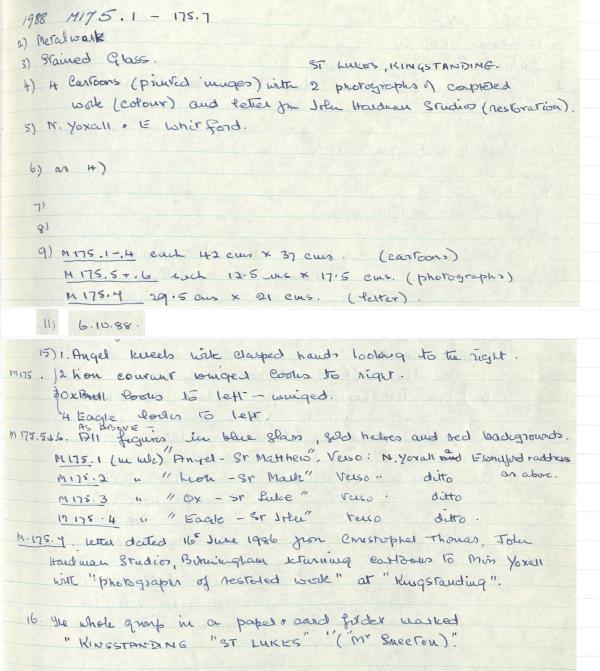 1988 M175.1 - 175.7
2) Metalwork
3) Stained Glass. ST LUKES, KINGSTANDING.
4) 4 Cartoons (printed images) with 2 photographs of completed
work (colour) and letter from John Hardman Studios (restoration).
5) N. Yoxall + E Whitford.
6) as 4)
7)
8)
9) M175.1-.4 each 42 cms x 37 cms. (cartoons)
M 175.5+.6 each 12.5 cms x 17.5 cms. (photographs)
M 175.7 29.5 cms x 21 cms. (letter).
11) 6.10.88.
15) 1. Angel kneels with clasped hands looking to the right.
M175. 2 Lion courant winged looks to right.
3 Ox looks to left - winged.
4 Eagle looks to left.
AS ABOVE -
M175.5+6. All figures in blue glass, gold haloes and red backgrounds.
M175.1 (in ink) "Angel - St Matthew". Verso: N. Yoxall and E Whitford + address
M175.2 " "Lion - St Mark" Verso " ditto as above.
M175.3 " "Ox - St Luke" Verso. ditto
M175.4 " "Eagle - St John" Verso ditto.
M.175.7. Letter dated 16th June 1986 from Christopher Thomas, John
Hardman Studios, Birmingham returning cartoons to Miss Yoxall
with "photographs of restored work" at "Kingstanding".
16. The whole group in a paper + card folder marked
"KINGSTANDING "ST LUKES" "("Mr Smeeton)".